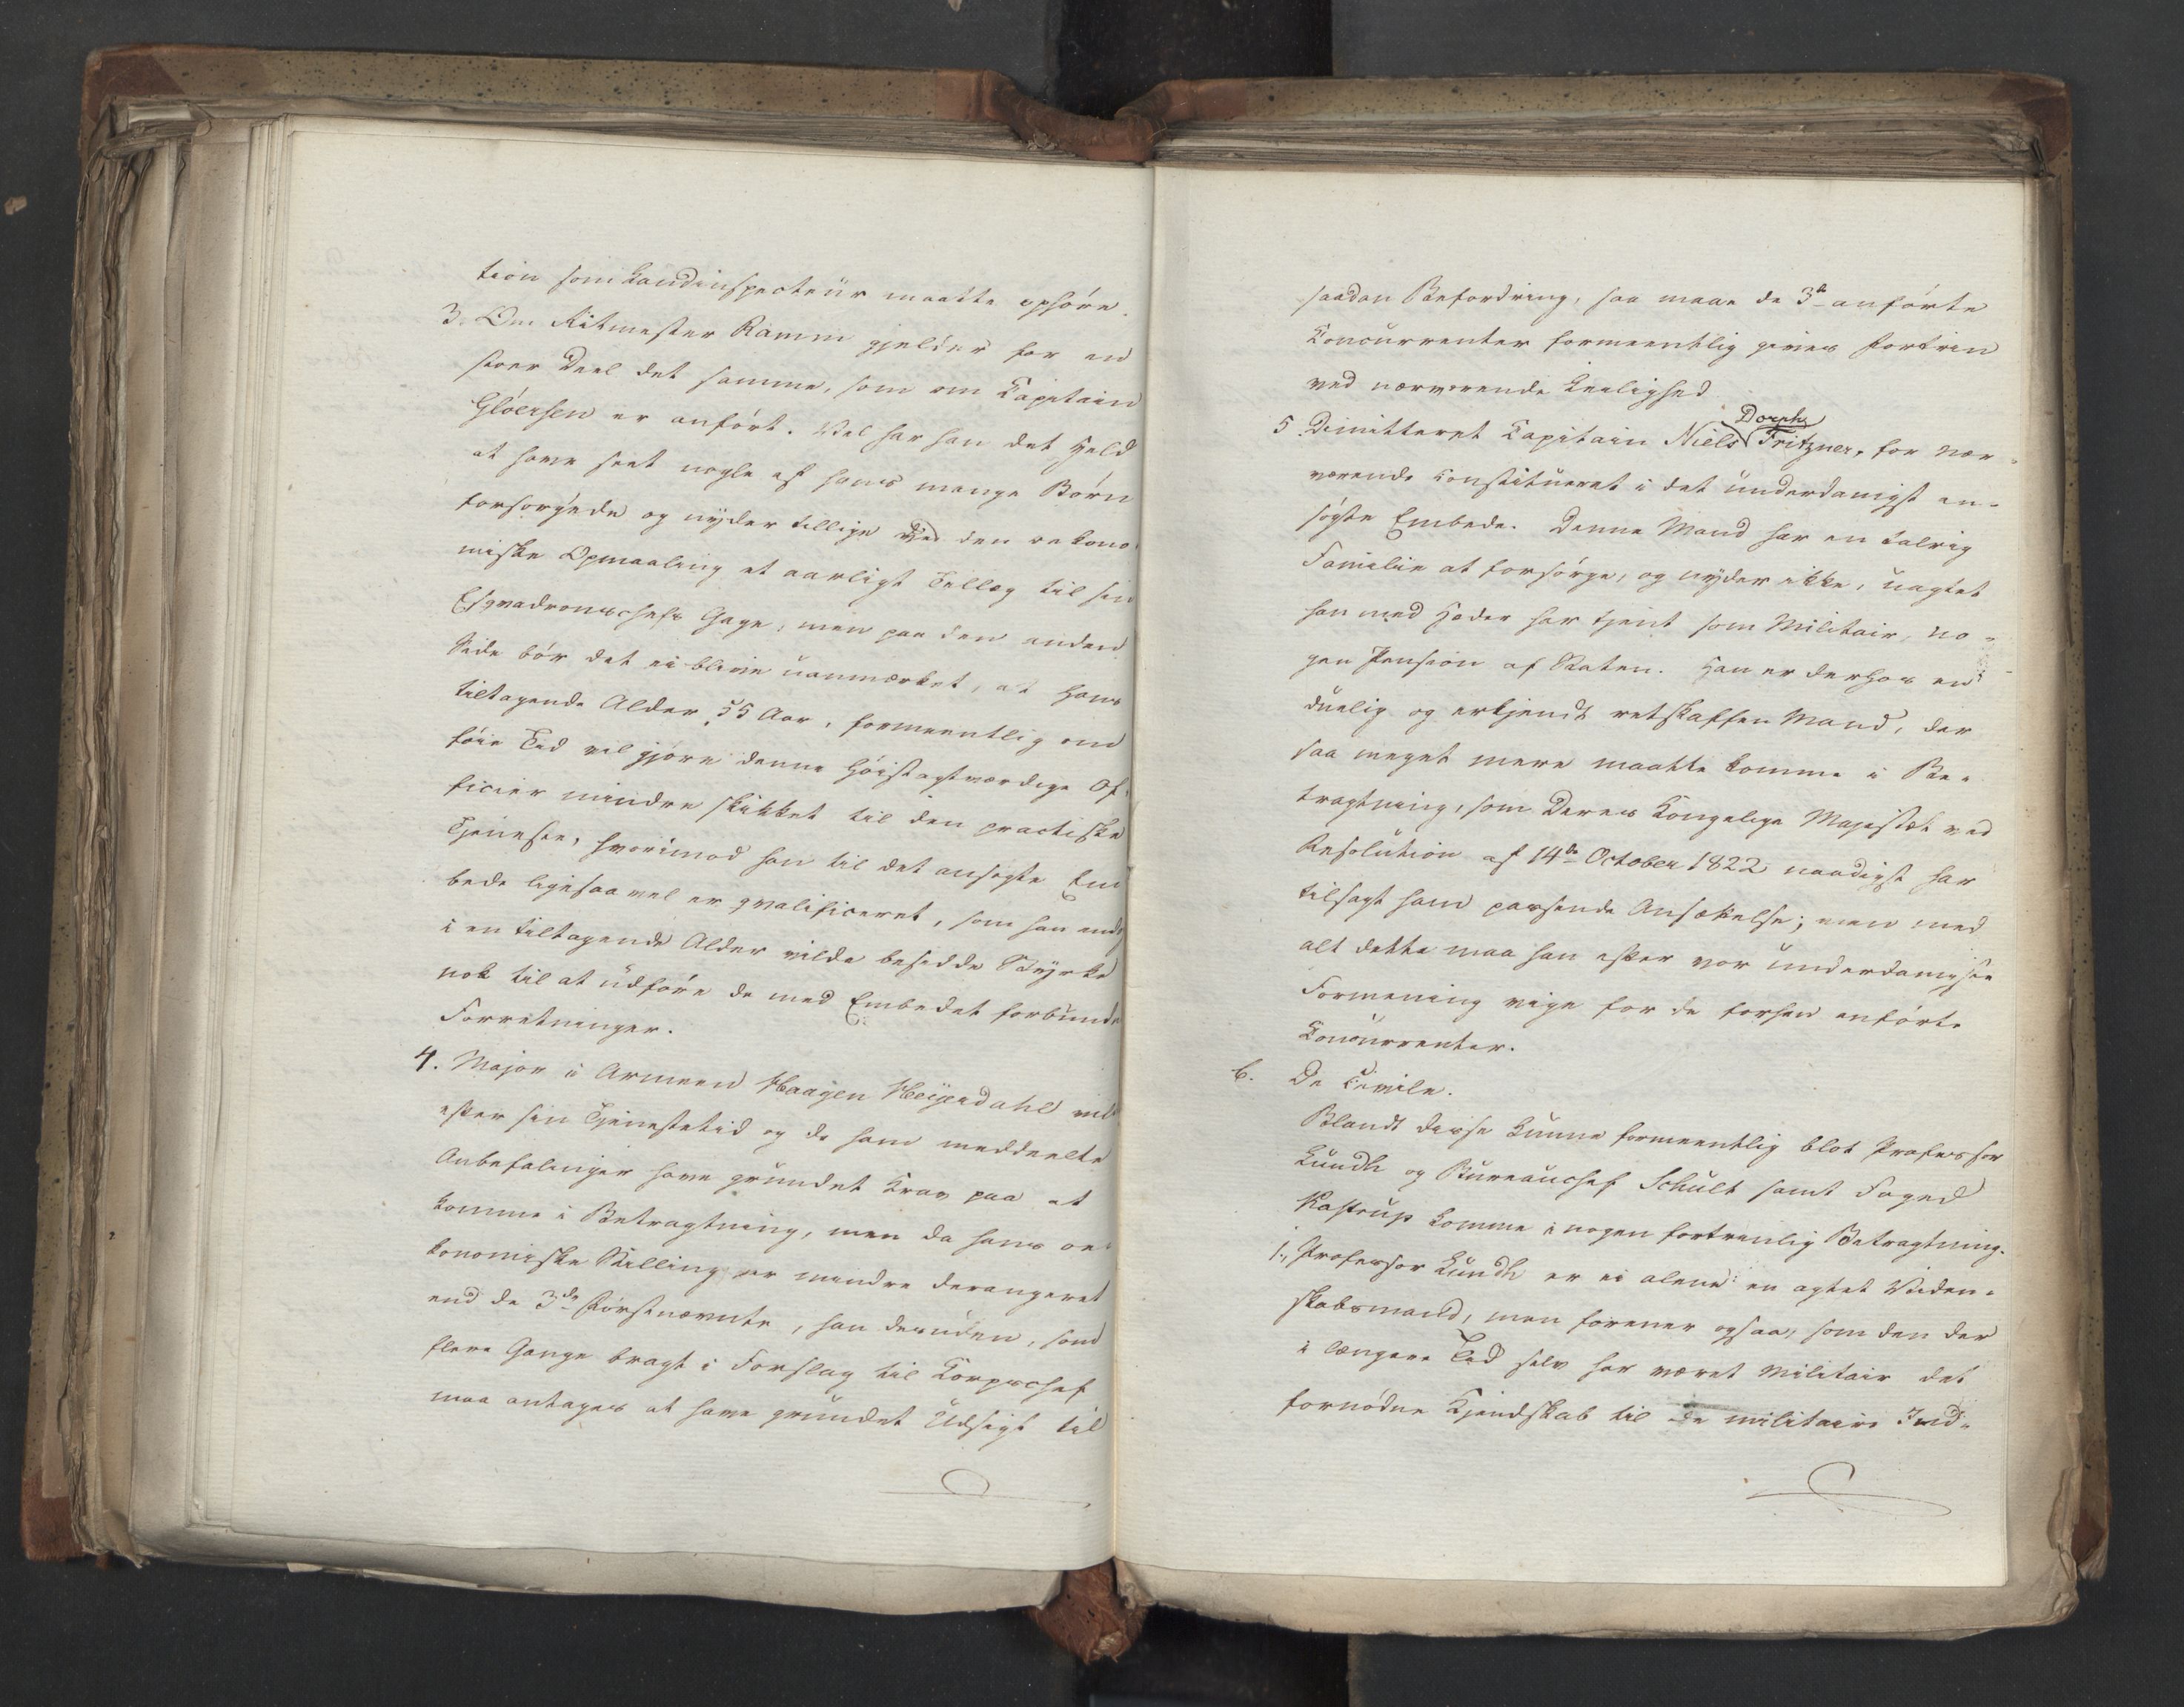 tion som Landinspecteur maatte ophøre.
3. Om Ritmester Ramm gjelder for en
stoer Deel det samme, som om Capitain
Gløersen er anført. Vel har han det Held
at have seet nogle af hans mange Børn
forsørgede og nyder tillige ved den oekono-
miske Opmaaling et aarligt Tillæg til sin
Esqvadronschefs Gage, men paa den anden
Side bør det ei blive uanmærket, at hans
tiltagende Alder, 55 Aar, formeentlig om
føie Tid vil gjøre denne høistagtværdige Of-
ficier mindre skikket til den practiske
Tjeneste, hvorimod han til det ansøgte Em
bede ligesaavel er qvalificeret, som han endog
i en tiltagende Alder vilde besidde Styrke
nok til at udføre de med Embedet forbundne
Forretninger.
4. Major i Armeen Haagen Heyerdahl vil
efter sin Tjenestetid og de ham meddeelte
Anbefalinger have grundet Krav paa at
komme i Betragtning, men da hans oe-
konomiske Stilling er mindre derangeret
end de 3de førstnævnte, han desuden, som
flere Gange bragt i Forslag til Corpschef
maa antages at have grundet Udsigt til
saadan Befordring, saa maae de 3de anførte
Concurrenter formeentlig gives Fortrin
ved nærværende Leilighed.
5. Dimitteret Capitain Niels Dorph Fritzner, for nær-
værende constitueret i det underdanigst an-
søgte Embede. Denne Mand har en talrig
Familie at forsørge, og nyder ikke, uagtet
han med Hæder har tjent som Militair, no-
gen Pension af Staten. Han er derhos en
duelig og erkjendt retskaffen Mand, der
saa meget mere maatte komme i Be-
tragtning, som Deres Kongelige Majestæt ved
Resolution af 14de October 1822 naadigst har
tilsagt ham passende Ansættelse; men med
alt dette maa han efter vor underdanigste
Formening vige for de forhen anførte
Concurrenter.
b. De Civile.
Blandt disse kunne formeentlig blot Professor
Lundh og Bureauchef Schult samt Foged
Kastrup komme i nogen fortrinlig Betragtning.
1., Professor Lundh er ei alene en agtet Viden-
skabsmand, men forener ogsaa, som den der
i længere Tid selv har været Militair det
fornødne Kjendskab til de militaire Ind-